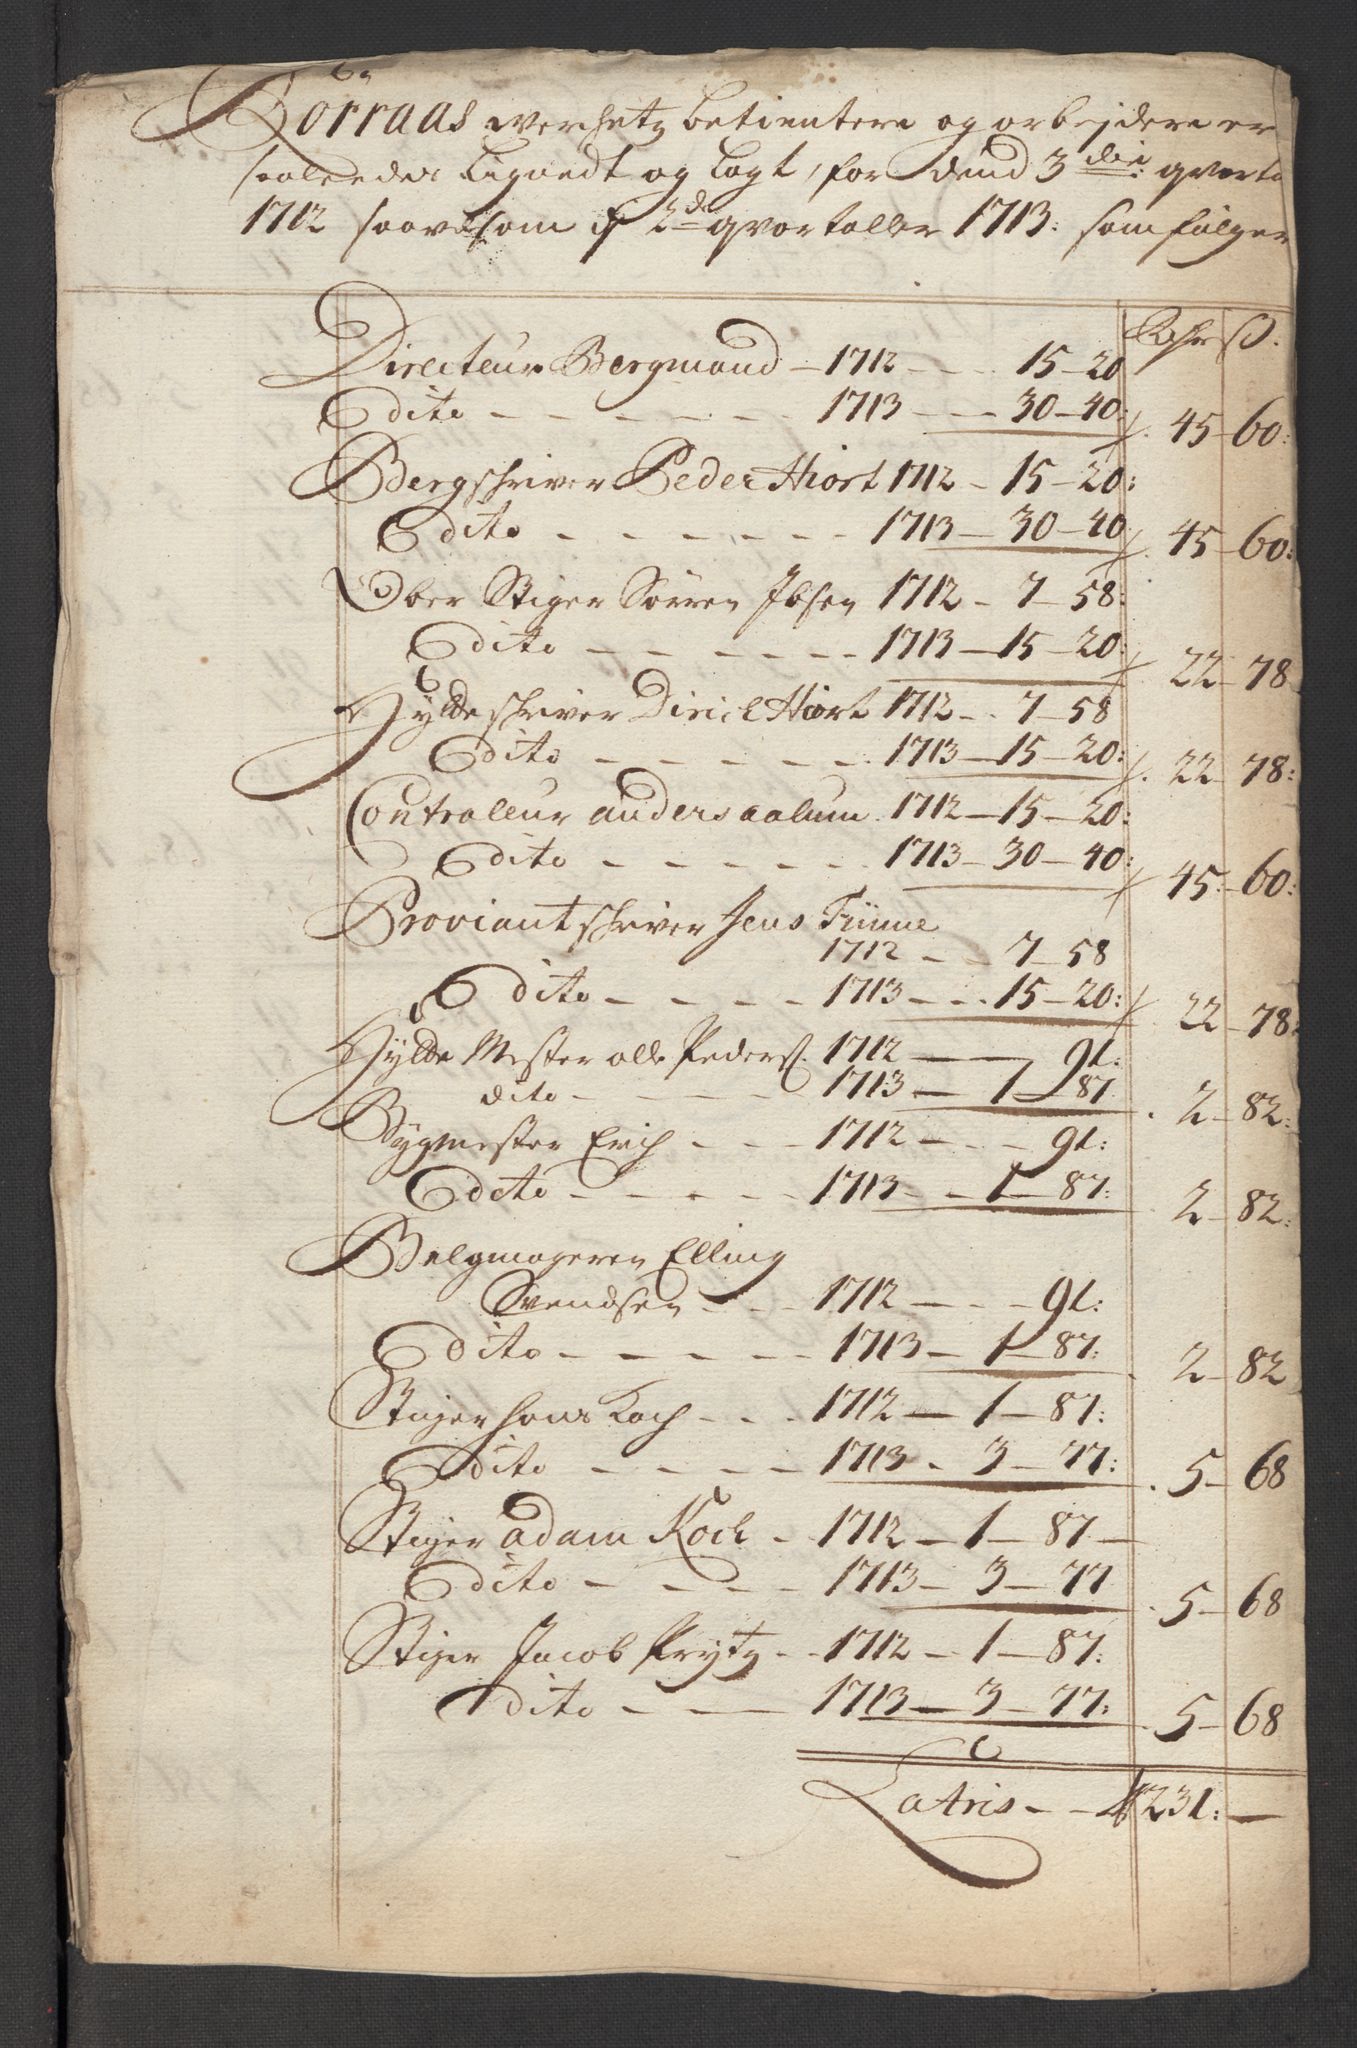 Körraas werchetz betientere og arbejdere er
saaledes Lignedt og Lagt, for dend 3die: qvarta
1712 saavelsom if 2de qvartaller 1713: som følger
Rdhr ß.
Directeur Bergmand – 1712 – – – 15 – 20
Dito – – – – – – 1713 – – 30 – 40: /. 45 – 60:
Bergschriver Peder Hiort 1712 – 15 – 20:
Dito – – – – – – 1713 – 30 – 40 /. 45 – 60:
Ober Stiger Sörren Ibsen 1712 – 7 – 58:
Dito – – – – – – 1713 – 15 – 20: / 22 – 78
Hytteschriver Dirich Hiort 1712 – . 7 – 58
Dito – – – – – – 1713 – 15 – 20: /. 22 – 78:
Controlleur anders aalum 1712 – 15 – 20:
Dito – – – – – – 1713 – 30 – 40: / 45: – 60:
Proviantschriver Jens Finne
1712 – – 7 – 58
Dito – – – – 1713 – – 15 – 20: / 22 – 78:
Hytte Mester olle Peders. 1712 – – 91:
dito – – – – 1713 – 1 – 87 . 2 – 82:
Bygmester Erich – – – 1712 – – – 91:
Dito – – – – – 1713 – – 1 – 87: . 2 – 82:
Belgmageren Elling
Svendsen – – – 1712 – – – 91:
Dito – – – – – 1713 – 1 – 87: . 2 – 82
Stiger hans Koch – – . 1712 – 1 – 87:
Dito – – – – 1713 – 3 – 77: . 5 – 68
Stiger adam Koch – 1712 – 1 – 87 –
Dito – – – – 1713 – 3 – 77 . 5 – 68
Stiger Jacob Prytz – . 1712 – 1 – 87:
Dito – – – 1713 – 3 – 77: . 5 – 68
Latris – – 231: –